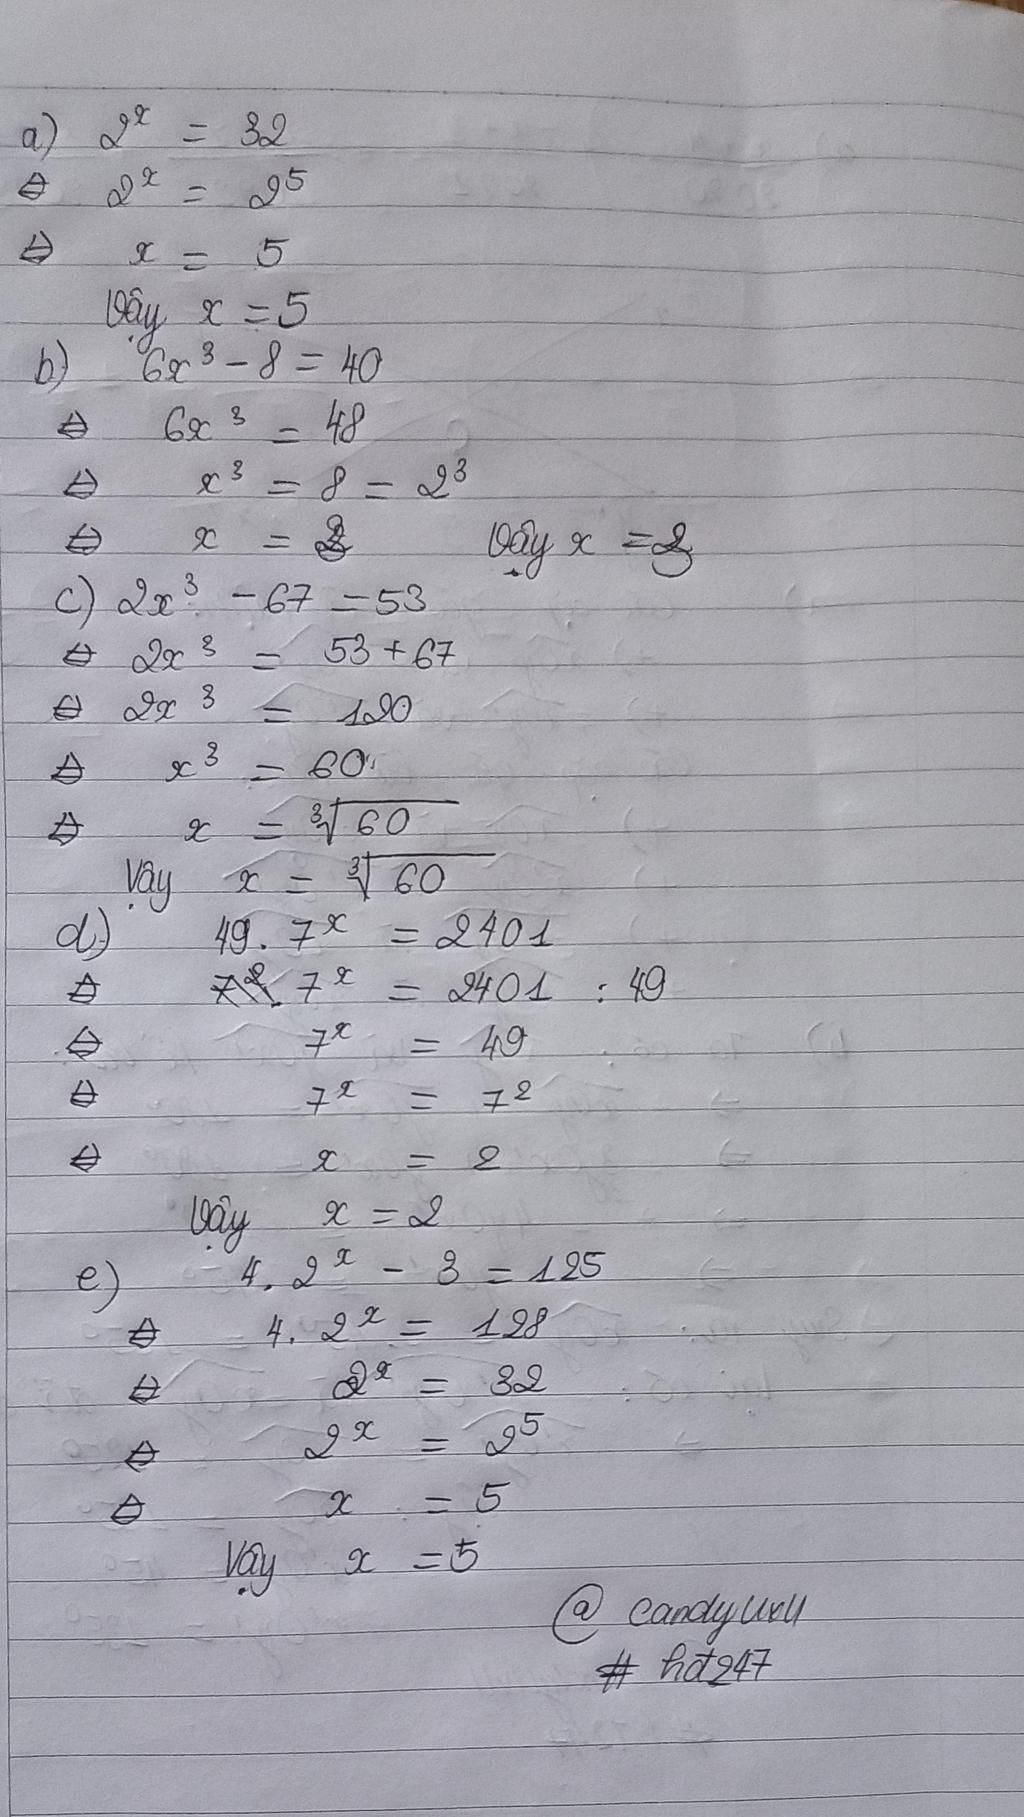 a) 2ˣ = 32
⇔ 2ˣ = 2⁵
⇔ x = 5
Vậy x = 5
b) 6x³ - 8 = 40
⇔ 6x³ = 48
⇔ x³ = 8 = 2³
⇔ x = 2 Vậy x = 2
c) 2x³ - 67 = 53
⇔ 2x³ = 53 + 67
⇔ 2x³ = 120
⇔ x³ = 60
⇔ x = ³√60
Vậy x = ³√60
d) 49. 7ˣ = 2401
⇔ 7ˣ = 2401 : 49
⇔ 7ˣ = 49
⇔ 7ˣ = 7²
⇔ x = 2
Vậy x = 2
e) 4. 2ˣ - 3 = 125
⇔ 4. 2ˣ = 128
⇔ 2ˣ = 32
⇔ 2ˣ = 2⁵
⇔ x = 5
Vậy x = 5
@
# hđ247